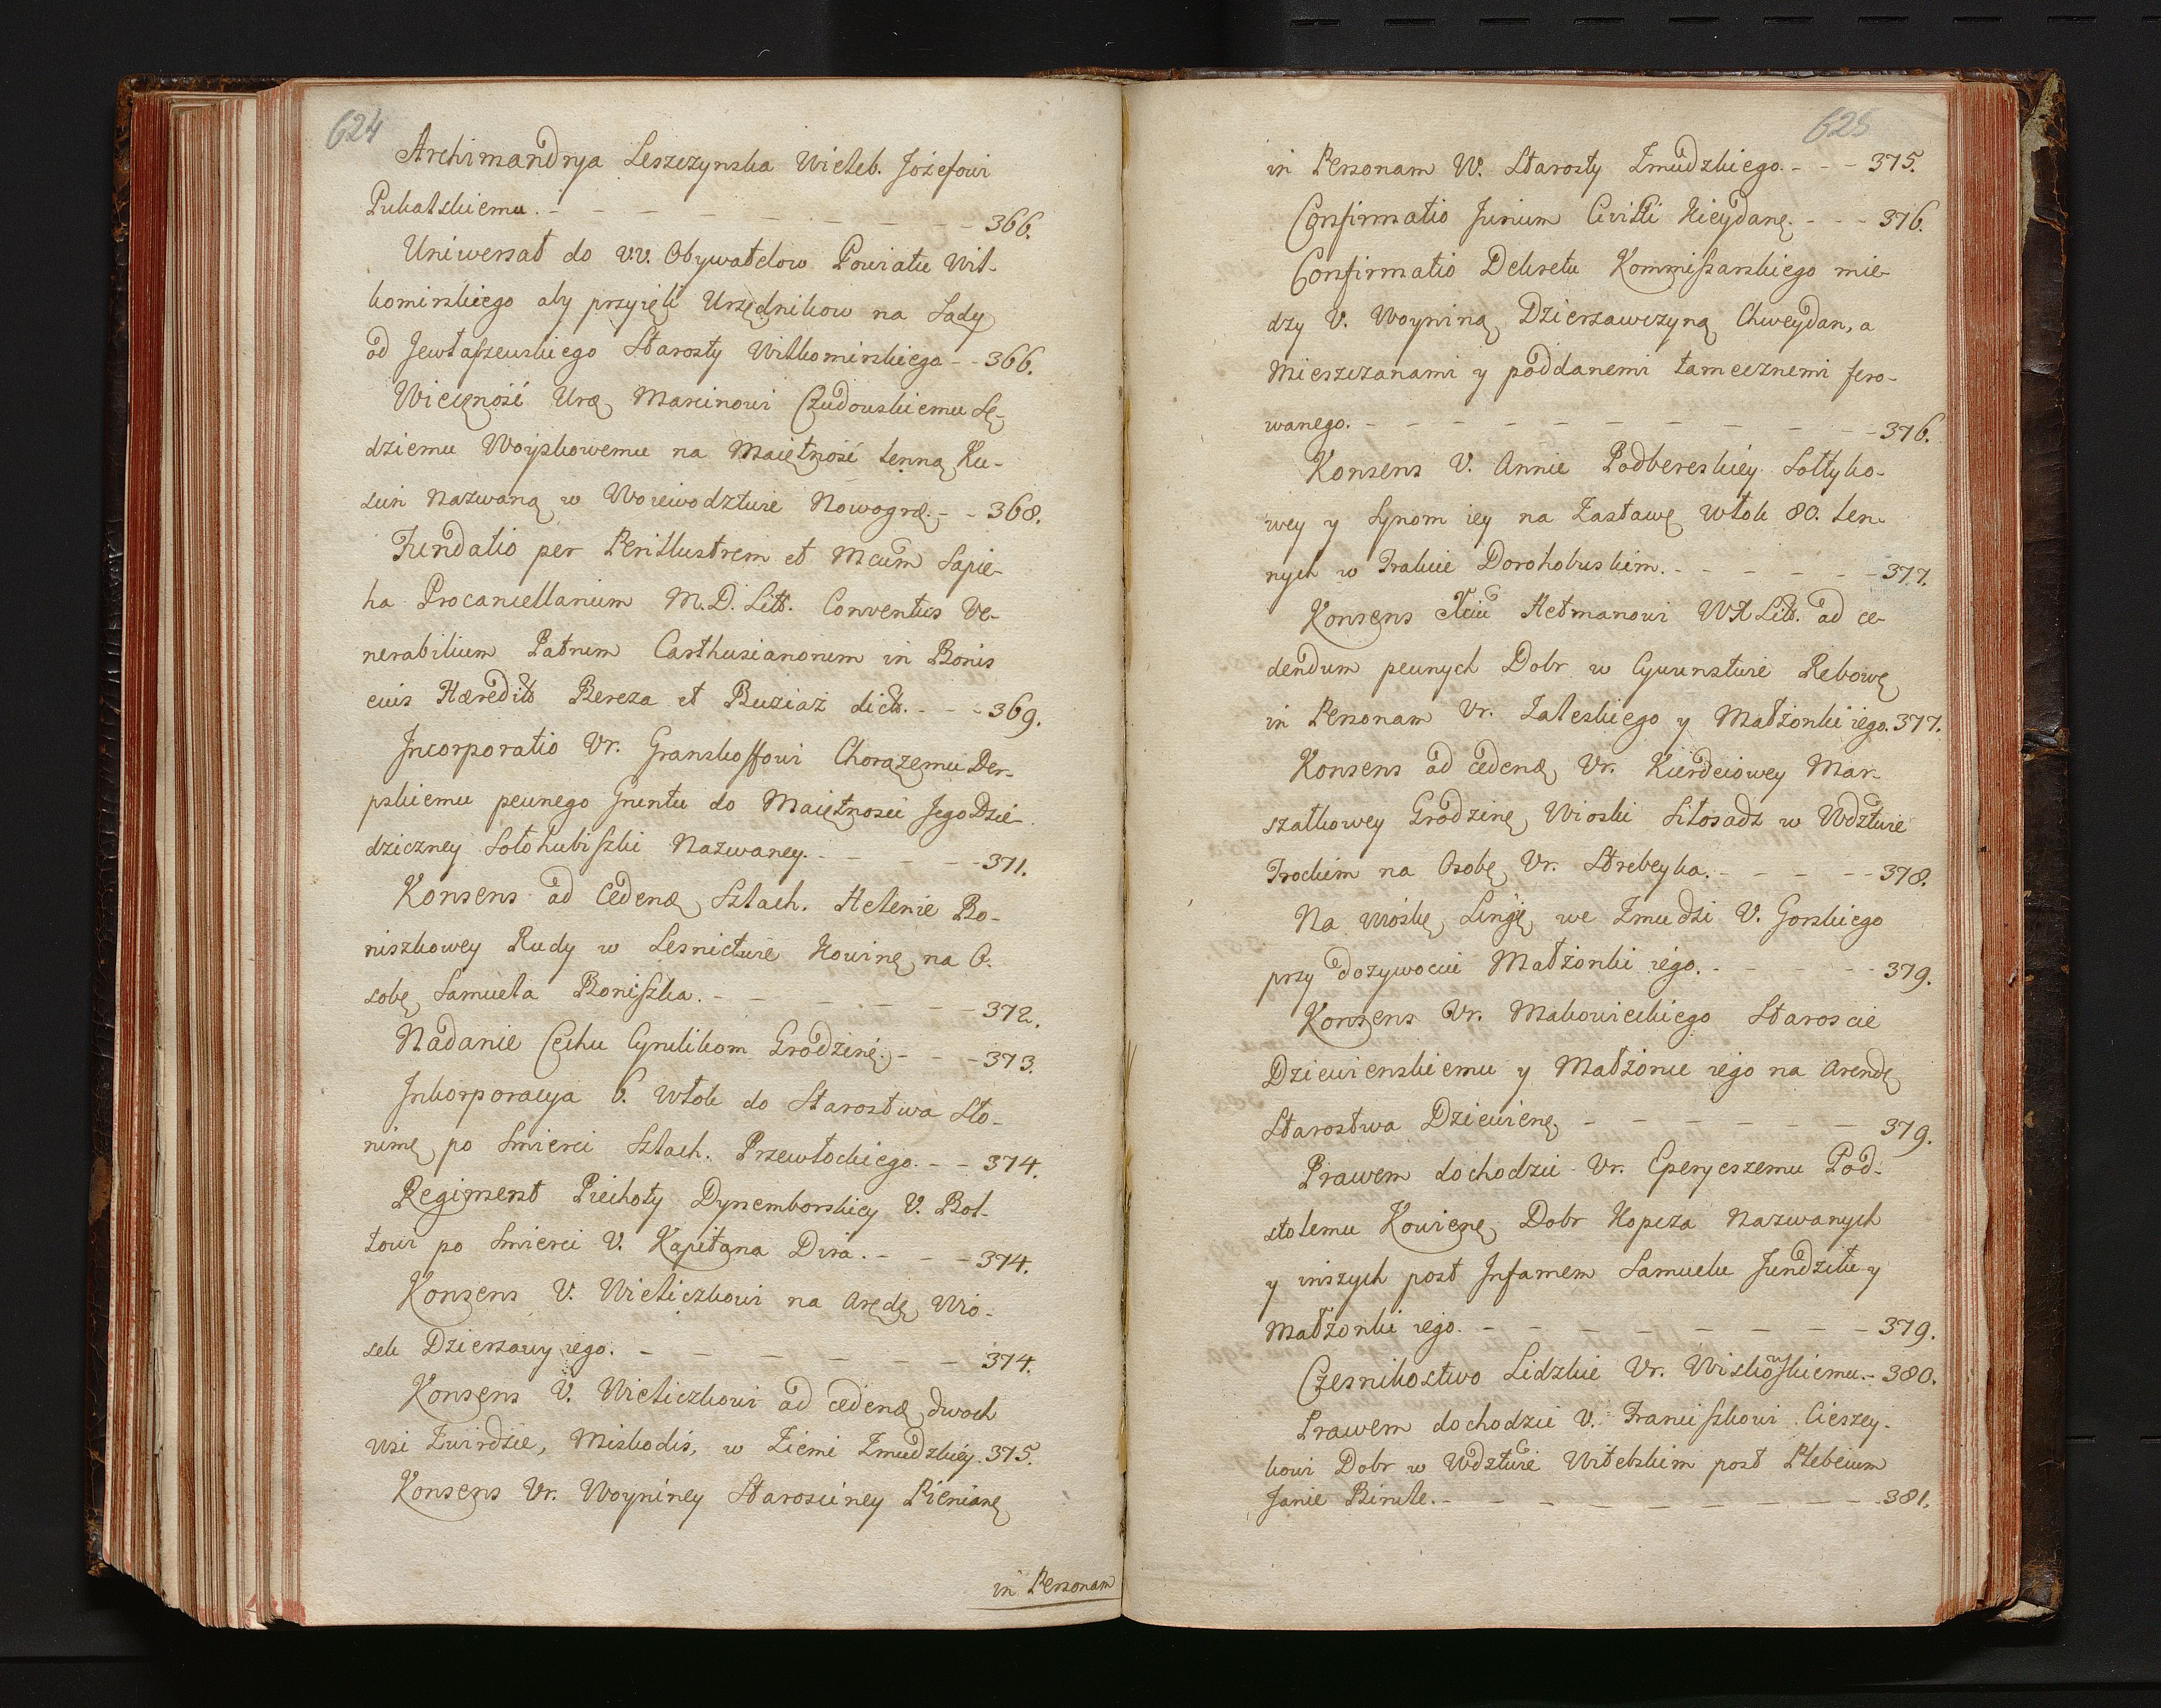 624
Archimandrya Leszczynska Wieleb. Józefowi
Pukalskiemu. - - - - - - - - 366.
Uniwersał do VV. Obywatelow Powiatu Wił-
komirskiego aby przyięli Urzędnikow na Sądy
od Jewłaszewskiego Starosty Wiłkomirskiego - - 366.
Wieczność Urę Marcinowi Czudowskiemu Sę-
dziemu Woyskowemu na Maiętność lenną Ku-
Nazwaną w Woiewodztwie Nowogrę. - - 368.
Fundatio per Perillustrem et Mcum Sapie-
ha Procancellarium M. D. Litt. Conventus Ve-
nerabilium Patrum Carthusianorum in Bonis
eius Hæredit Bereza et Buziaż dict. - - - 369.
Incorporatio Vr. Granskoffowi Chorążemu Der-
pskiemu pewnego Gruntu do Maiętnosci Jego Dzie-
dziczney Sołohubiszki Nazwaney. - - - - - 371.
Konsens ad Cedenđ Szlach. Helenie Bo-
niszkowey Rudy w Lesnictwie Kowinę na O-
sobę Samuela Boniszka. - - - - - - 372.
Nadanie Cechu Cyrulikom Grodzinę. - - - 373.
Inkorporacya 6. Włok do Starostwa Sło-
nimę po Smierci Szlach. Przewłockiego. - - 374.
Regiment Piechoty Dynemborskiey V. Bol-
towi po Smierci V. Kapitana Dira. - - - 374.
Konsens V. Wieliczkowi na Arędę Wio-
sek Dzierzawy iego. - - - - - - - 374.
Konsens V. Wieliczkowi ad cedenđ dwoch
Wsi Zwirdzie, Miskodis, w Ziemi Zmudzkiey. 375.
Konsens Vr. Woyniney Starosciney Pienianę
in Personam
625
in Personam W. Starosty Zmudzkiego. - - - 375.
Confirmatio Jurium Civitti Kieydanę. - - - 376.
Confirmatio Dekretu Kommissarskiego mie-
dzy V. Woyniną Dzierzawczyną Chweydan, a
Mieszczanami y poddanemi tamecznemi fero-
wanego. - - - - - - - - - - - 376.
Konsens V. Annie Podbereskiey Sołtyko-
wey y Synom iey na Zastawę Włok 80. len-
nych w Trakcie Dorohobuskim. - - - - - - 377.
Konsens Xciu Hetmanowi WXLitt. ad ce-
dendum pewnych Dobr w Cywunstwie Rebowę
in Personam Vr. Zaleskiego y Małżonki iego. 377.
Konsens ad cedenđ Vr. Kierdeiowey Mar-
szałkowey Grodzinę Wioski Siłosadz w Wdztwie
Trockim na Osobę Vr. Strebeyka. - - - - - 378.
Na wioskę Lingę we Zmudzi V. Gorskiego
przy dozywociu Małżonki iego. - - - - - 379.
Konsens Vr. Makowieckiego Staroscie
Dziewienskiemu y Małżonce iego na Arendę
Starostwa Dziewienę. - - - - - - - 379.
Prawem dochodzic Vr. Eperyeszemu Pod-
stolemu Kowienę Dobr Kopcza Nazwanych
y inszych post Infamem Samuelu Jundzilu y
Małżonki iego. - - - - - - - - 379.
Czesnikostwo Lidzkie Vr. Wiskowskiemu. - 380.
Prawem dochodzic V. Franciszkowi Cieszey-
kowi Dobr w Wdztwie Witebskim post Plebeium
Janie Birule. - - - - - - - - - 381.